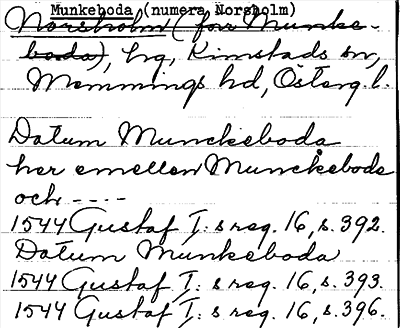 Munkeboda (numera Norsholm)
Norsholm (förr Munke-
boda), hg, Kimstads sn,
Memmings hd, Österg. l.
Datum Munckeboda
her emellen Munckeboda
och ----
1544 Gustaf I:s reg. 16, s. 392.
Datum Munkeboda
1544 Gustaf I:s reg. 16, s. 393.
1544 Gustaf I:s reg. 16, s. 396.